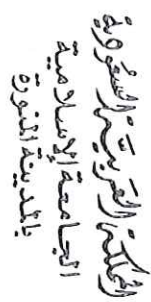 المملكة العربية السعودية
الجامعة الإسلامية
بالمدينة المنورة